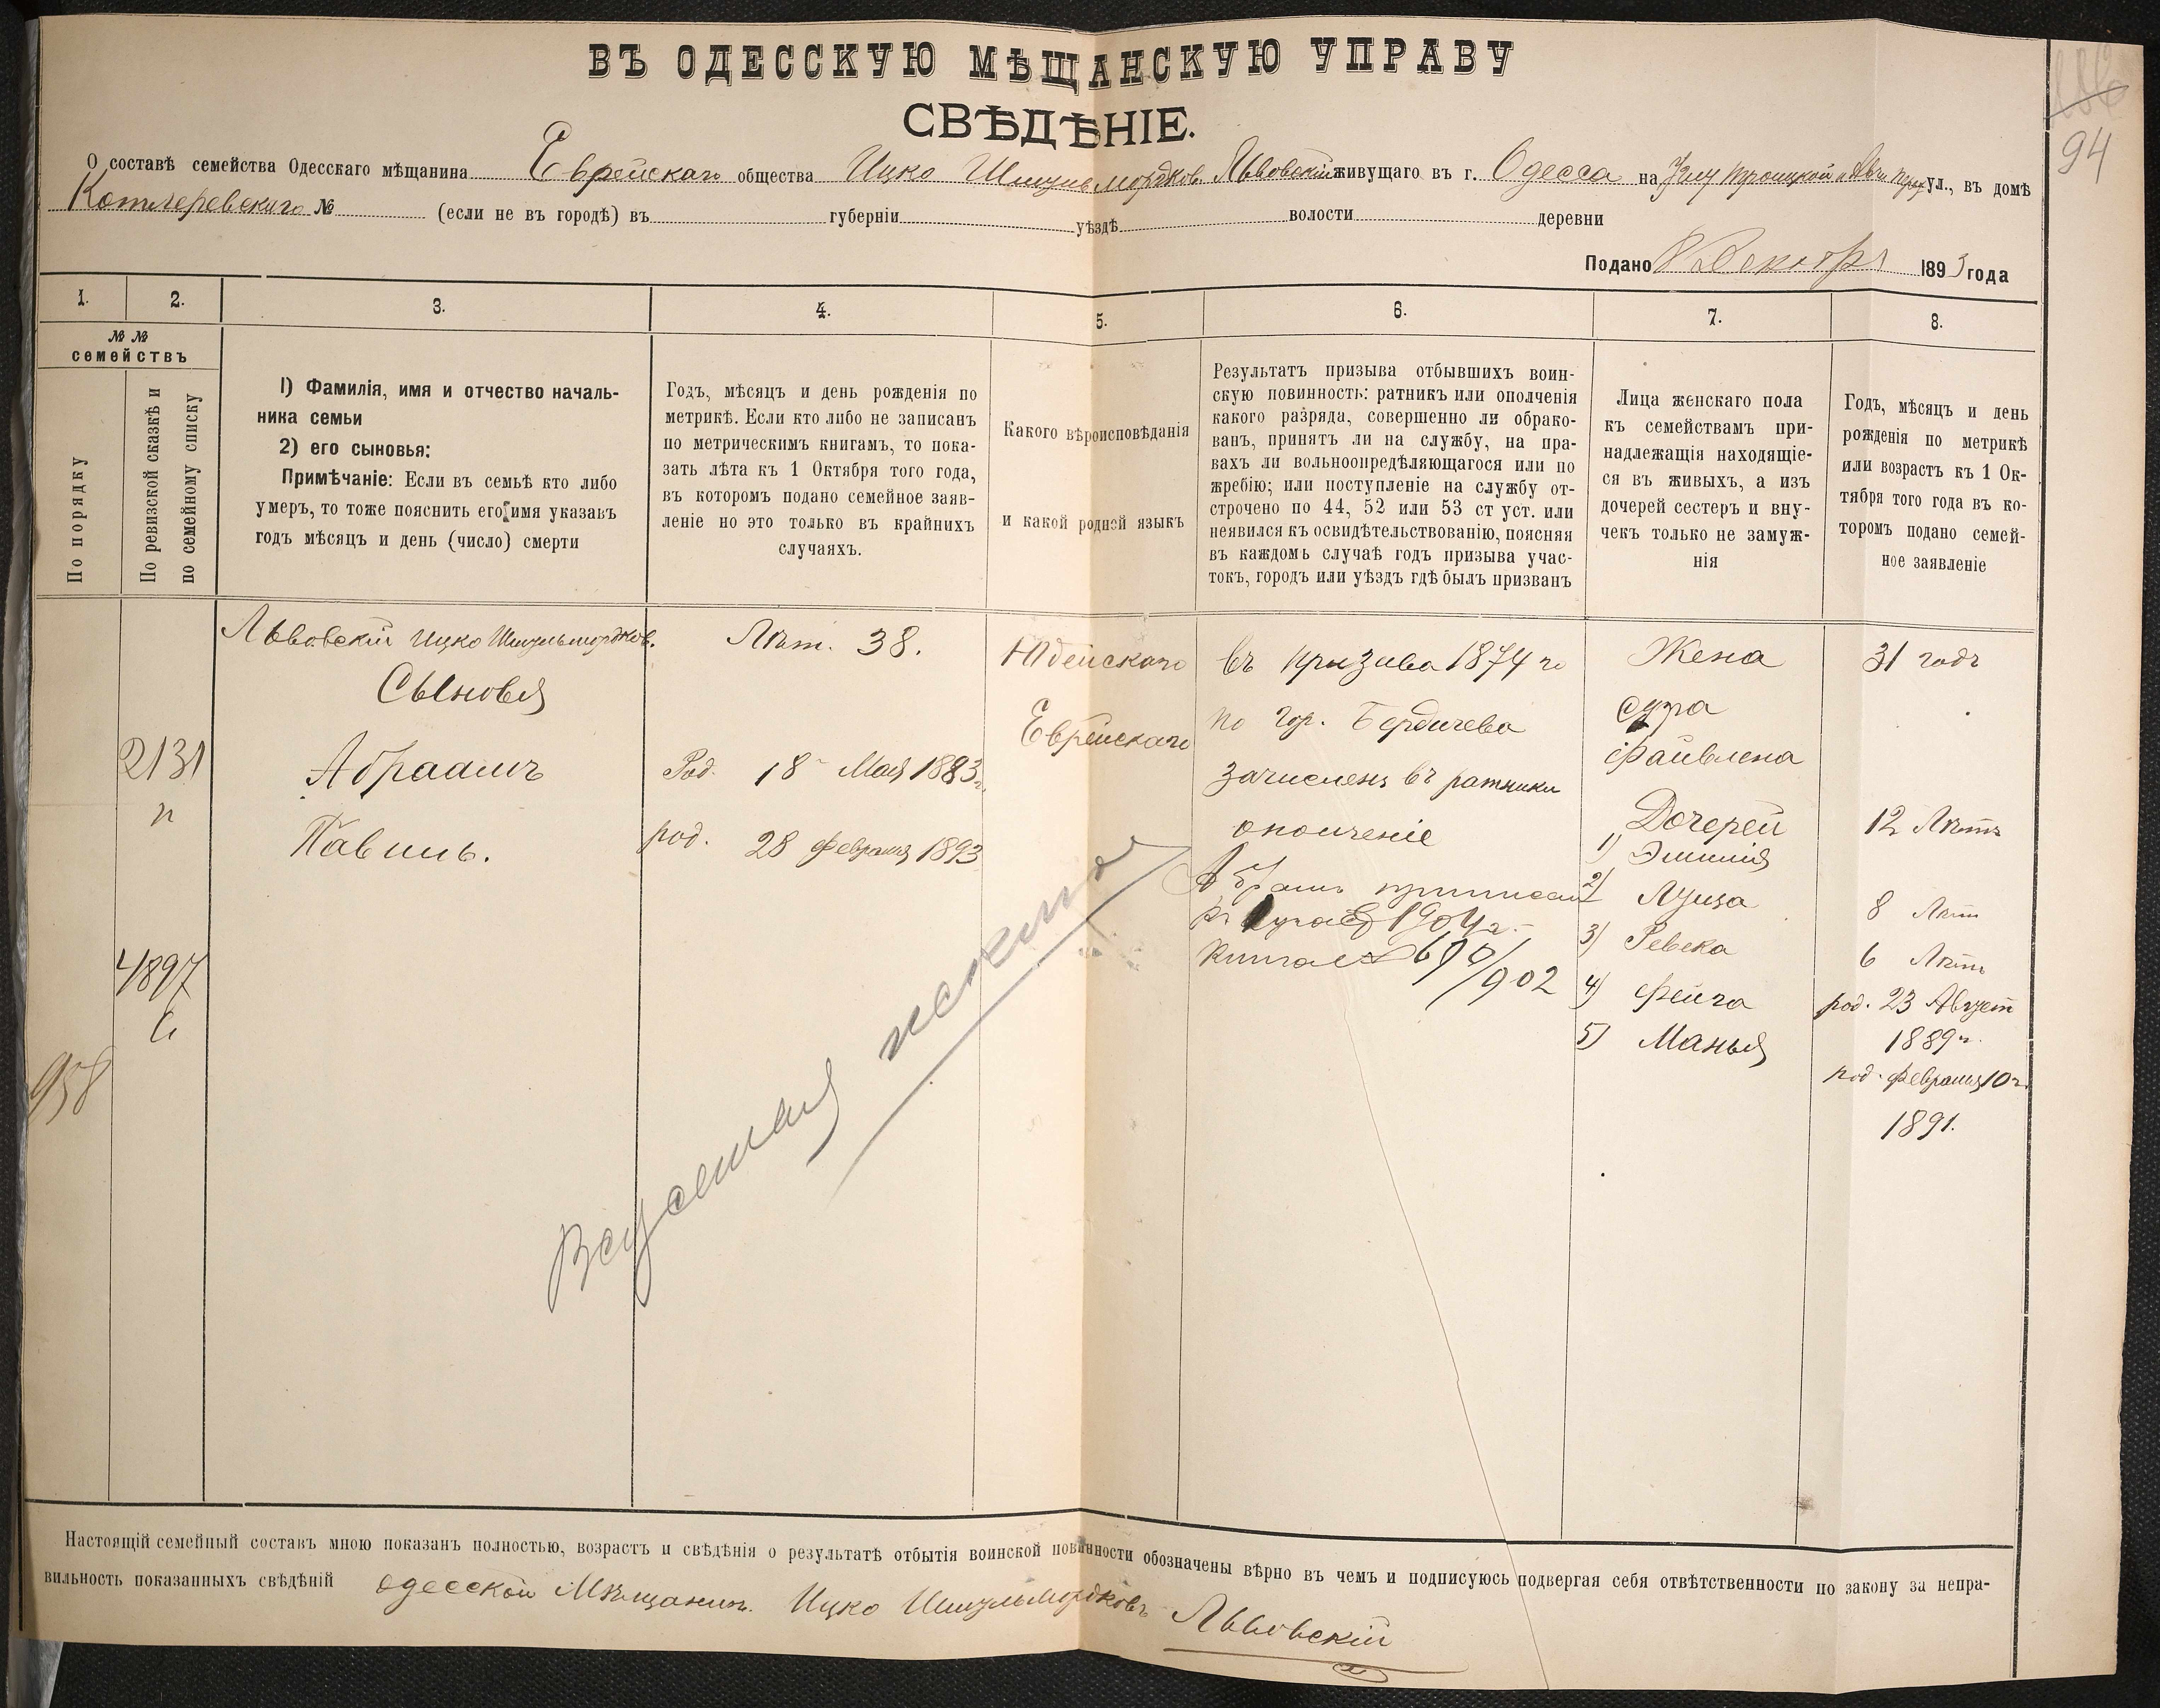 ВЪ ОДЕССКУЮ МѢЩАНСКУЮ УПРАВУ
СВѢДѢНІЕ.
94
О составѣ семейства Одесскаго мѣщанина Еврейскаго общества Ицко Шмуль Мордков. Львовскій живущаго въ г. Одесса на Углу Троицкой и ул., въ домѣ
Котляревскаго № (если не въ городѣ) въ губерніи уѣздѣ волости деревни
Подано 8 Декабря 1893 года
1. 2. 3. 4. 5. 6. 7. 8.
№ №
семействъ
По порядку
По ревизской сказкѣ и
по семейному списку
1) Фамилія, имя и отчество началь-
ника семьи
2) его сыновья:
Примѣчаніе: Если въ семьѣ кто либо
умеръ, то тоже пояснить его имя указавъ
годъ мѣсяцъ и день (число) смерти
Годъ, мѣсяцъ и день рожденія по
метрикѣ. Если кто либо не записанъ
по метрическимъ книгамъ, то пока-
зать лѣта къ 1 Октября того года,
въ котоpомъ подано семейное заяв-
леніе но это только въ крайнихъ
случаяхъ.
Какого вѣроисповѣданія
и какой родной языкъ
Результатъ призыва отбывшихъ воин-
скую повинность: ратникъ или ополченія
какого разряда, совершенно ли обрако-
ванъ, принятъ ли на службу, на пра-
вахъ ли вольноопредѣляющагося или по
жребію; или поступленіе на службу от-
строчено по 44, 52 или 53 ст уст. или
неявился къ освидѣтельствованію, поясняя
въ каждомъ случаѣ годъ призыва учас-
токъ, городъ или уѣздъ гдѣ былъ призванъ
Лица женскаго пола
къ семействамъ при-
надлежащія находящіе-
ся въ живыхъ, а изъ
дочерей сестеръ и вну-
чекъ только не замуж-
нія
Годъ, мѣсяцъ и день
рожденія по метрикѣ
или возрастъ къ 1 Ок-
тября того года въ ко-
торомъ подано семей-
ное заявленіе
958
2131
п
4897
Львовскій Ицко Шмульмордков.
Сыновья
Абраамъ
Павиль.
Лѣт. 38.
Род. 18 Мая 1883 г.
род. 28 Февраля 1893
Юдейскаго
Еврейскаго
въ призыва 1874 го
по гор. Бердичева
зачисленъ въ ратники
ополченіе
Абрамъ приписан
1904 г.
690/902
Жена
Сура
Файвлена
Дочерей
1) Эмилія
2) Луиза
3) Ревека
4) Фейга
5) Манья
31 годъ
12 Лѣтъ
8 Лѣт
6 Лѣтъ
род. 23 Август
1889 г.
род. Февраля 10 г.
1891.
Настоящій семейный составъ мною показанъ полностью, возрастъ и свѣдѣнія о результатѣ отбытія воинской повинности обозначены вѣрно въ чемъ и подписуюсь подвергая себя отвѣтственности по закону за непра-
вильность показанныхъ свѣдѣній одесской Мѣщанинъ. Ицко Шмульмордковъ
Львовскій